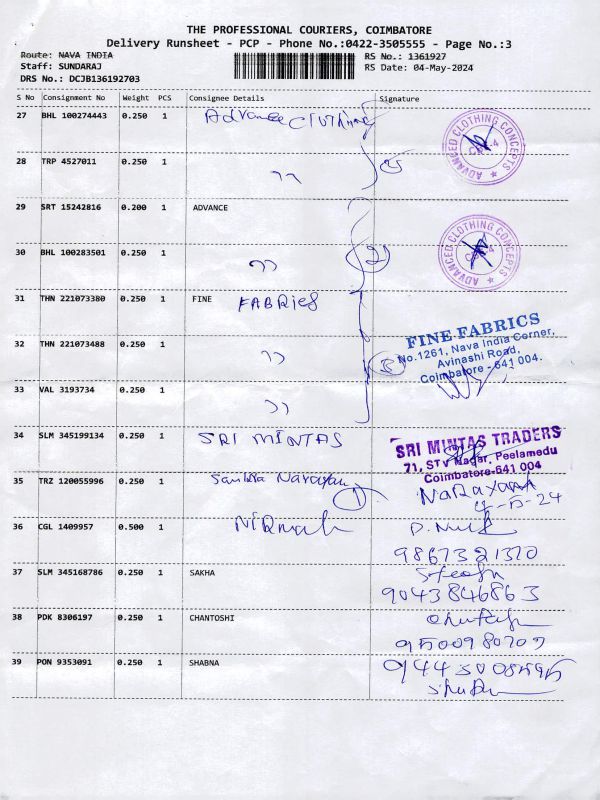 THE PROFESSIONAL COURIERS, COIMBATORE
Delivery Runsheet - PCP - Phone No.:0422-3505555 - Page No.:3
Route: NAVA INDIA
RS No.: 1361927
Staff: SUNDARAJ
RS Date: 04-May-2024
DRS No.: DCJB136192703
S No Consignment No Weight PCS Consignee Details Signature
27 BHL 100274443 0.250 1 Advance
ADVANCED CLOTHING CONCEPTS
28 TRP 4527011 0.250 1 ,,
29 SRT 15242816 0.200 1 ADVANCE
ADVANCED CLOTHING CONCEPTS
30 BHL 100283501 0.250 1 ,,
31 THN 221073380 0.250 1 FINE FABRIES
FINE FABRICS
No.1261, Nava India Corner,
Avinashi Road,
Coimbatore - 641 004.
32 THN 221073488 0.250 1 ,,
33 VAL 3193734 0.250 1 ,,
34 SLM 345199134 0.250 1 SRI MINTAS
SRI MINTAS TRADERS
71, STV Nagar, Peelamedu
Coimbatore-641 004
35 TRZ 120055996 0.250 1 Narayan 1
NARAYANA
36 CGL 1409957 0.500 1
9867321320
37 SLM 345168786 0.250 1 SAKHA
9043846863
38 PDK 8306197 0.250 1 CHANTOSHI
39 PON 9353091 0.250 1 SHABNA